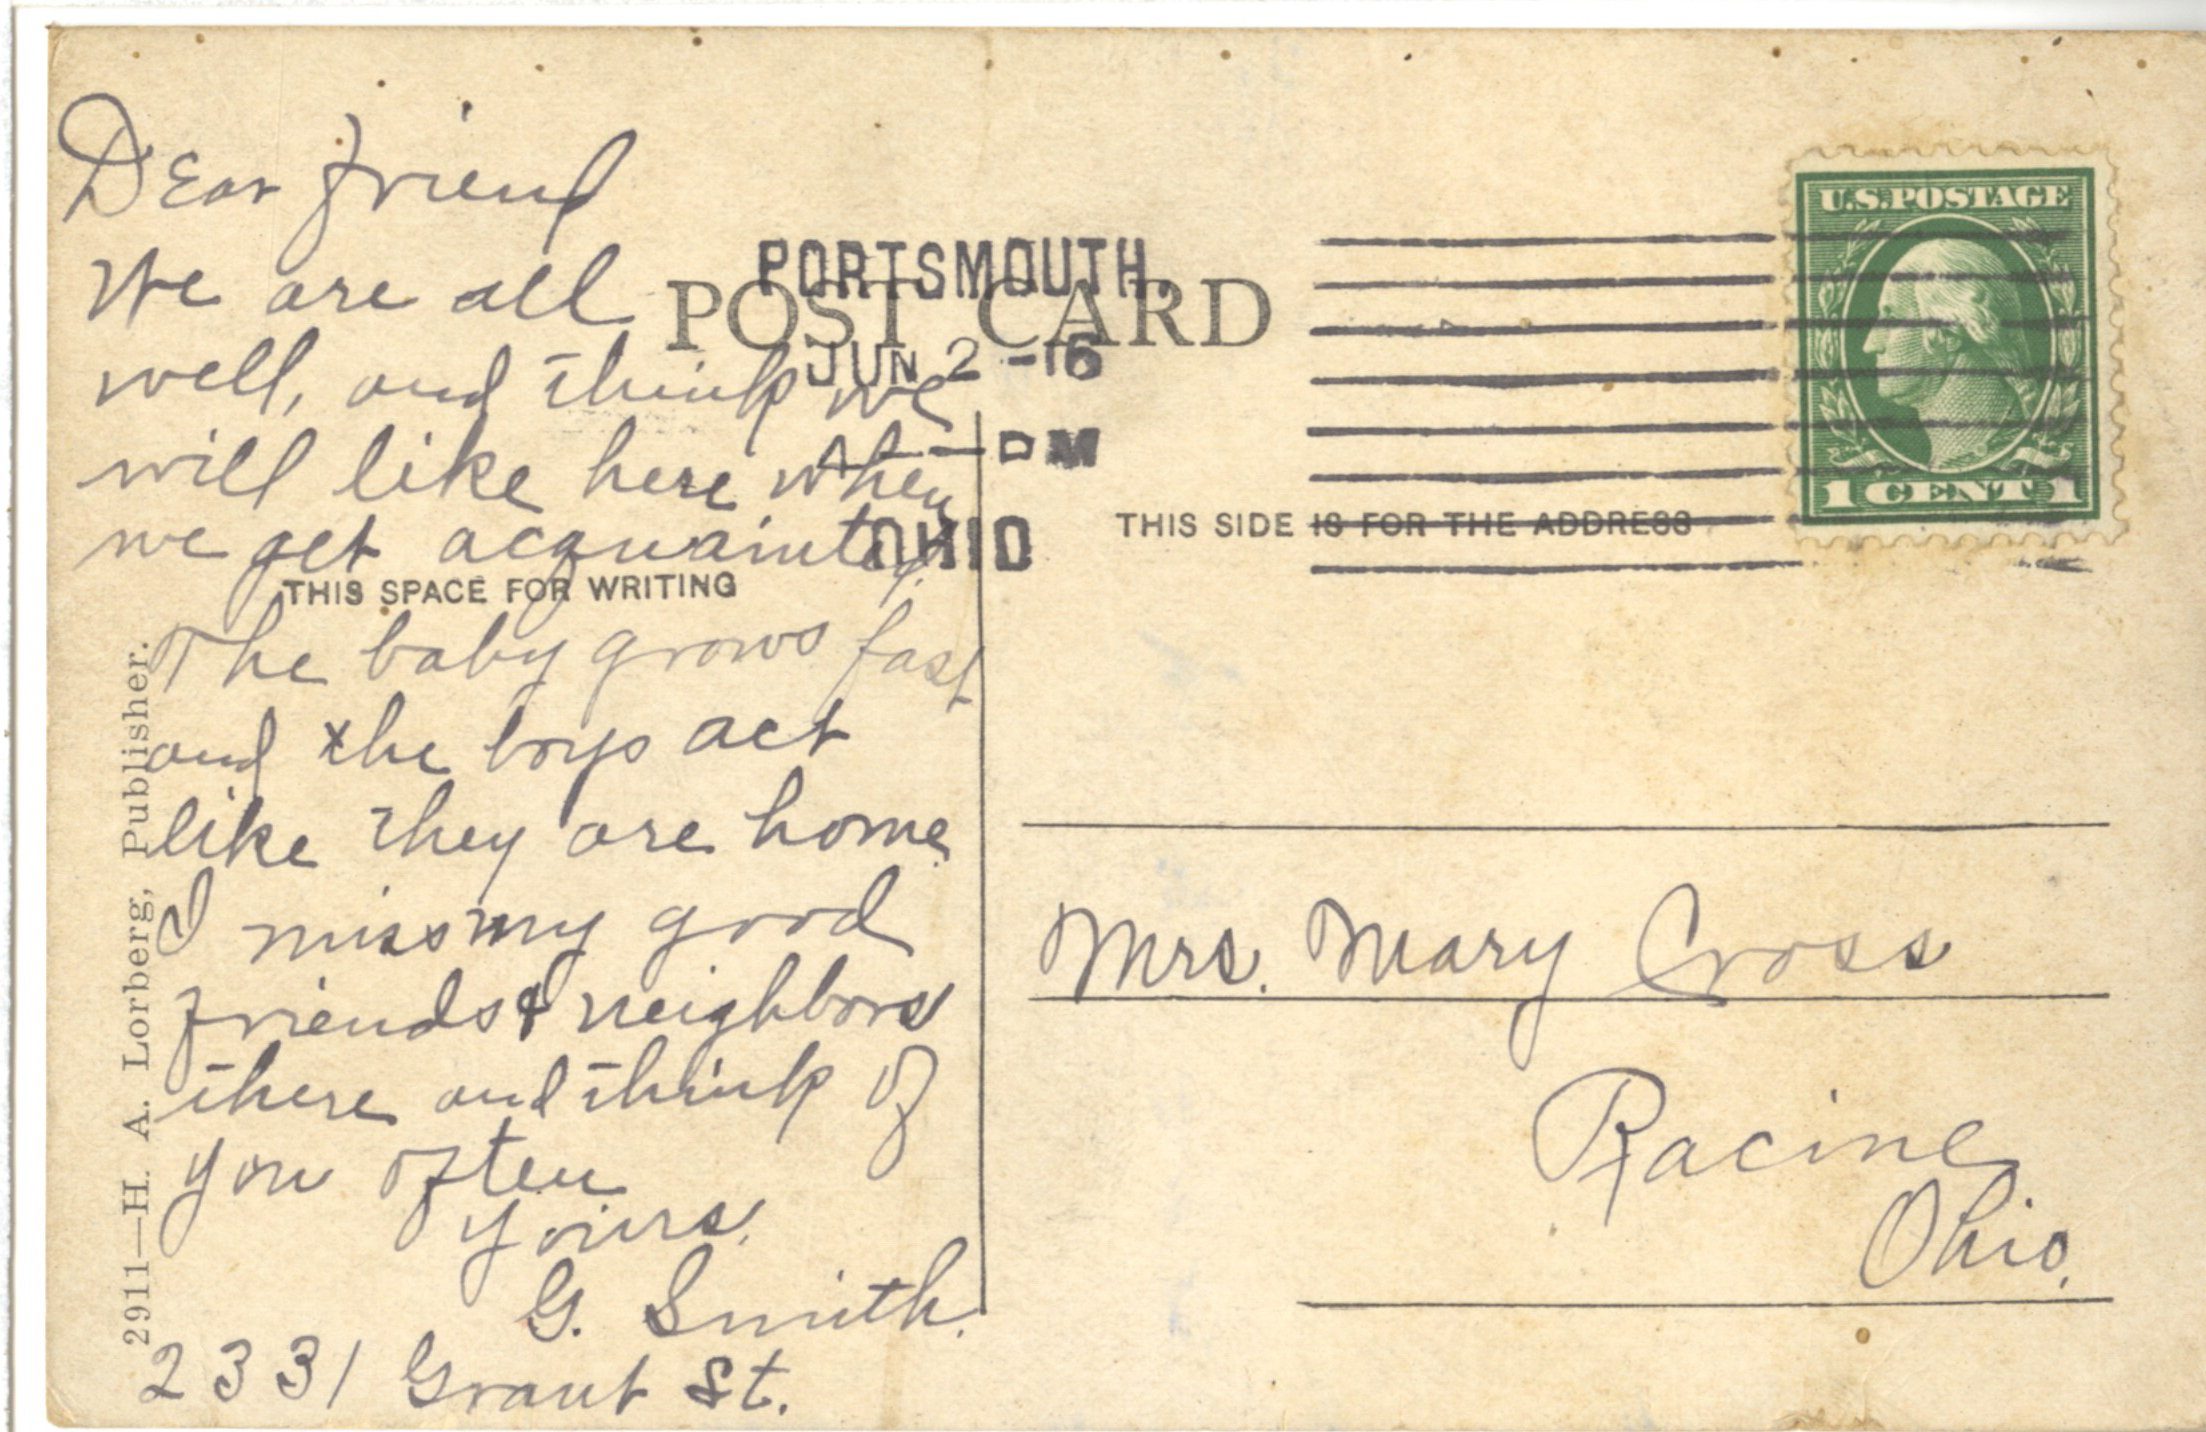 Dear friend
We are all
well, and think we
will like here when
we get acquainted.
The baby grows fast
and the boys act
like they are home
I miss my good
friends & neighbors
there and think of
you often
yours.
G. Smith.
2331 Grant St.
THIS SPACE FOR WRITING
2911—H. A. Lorberg, Publisher.
POST CARD
PORTSMOUTH,
JUN 2 -16
PM
OHIO
THIS SIDE IS FOR THE ADDRESS
U.S. POSTAGE
1 CENT 1
Mrs. Mary Cross
Racine
Ohio.